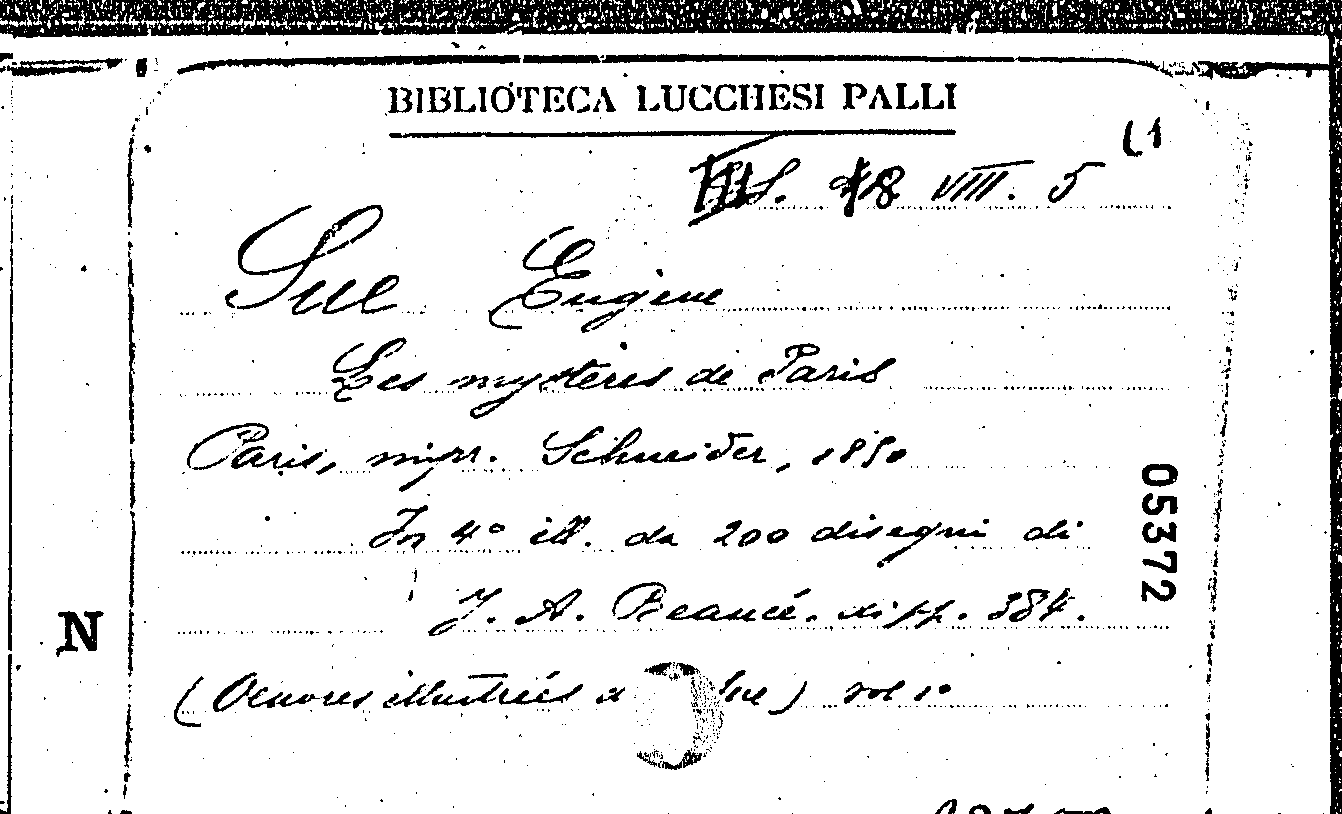 BIBLIOTECA LUCCHESI PALLI
(1
VIII. 5
Sue Eugène
Les mystères de Paris
Paris, impr. Schneider, 1850
In 4° ill. da 200 disegni di
J. A. Beaucé. di pp. 384.
(Oeuvres illustrées d Sue) vol 1°
05372
N